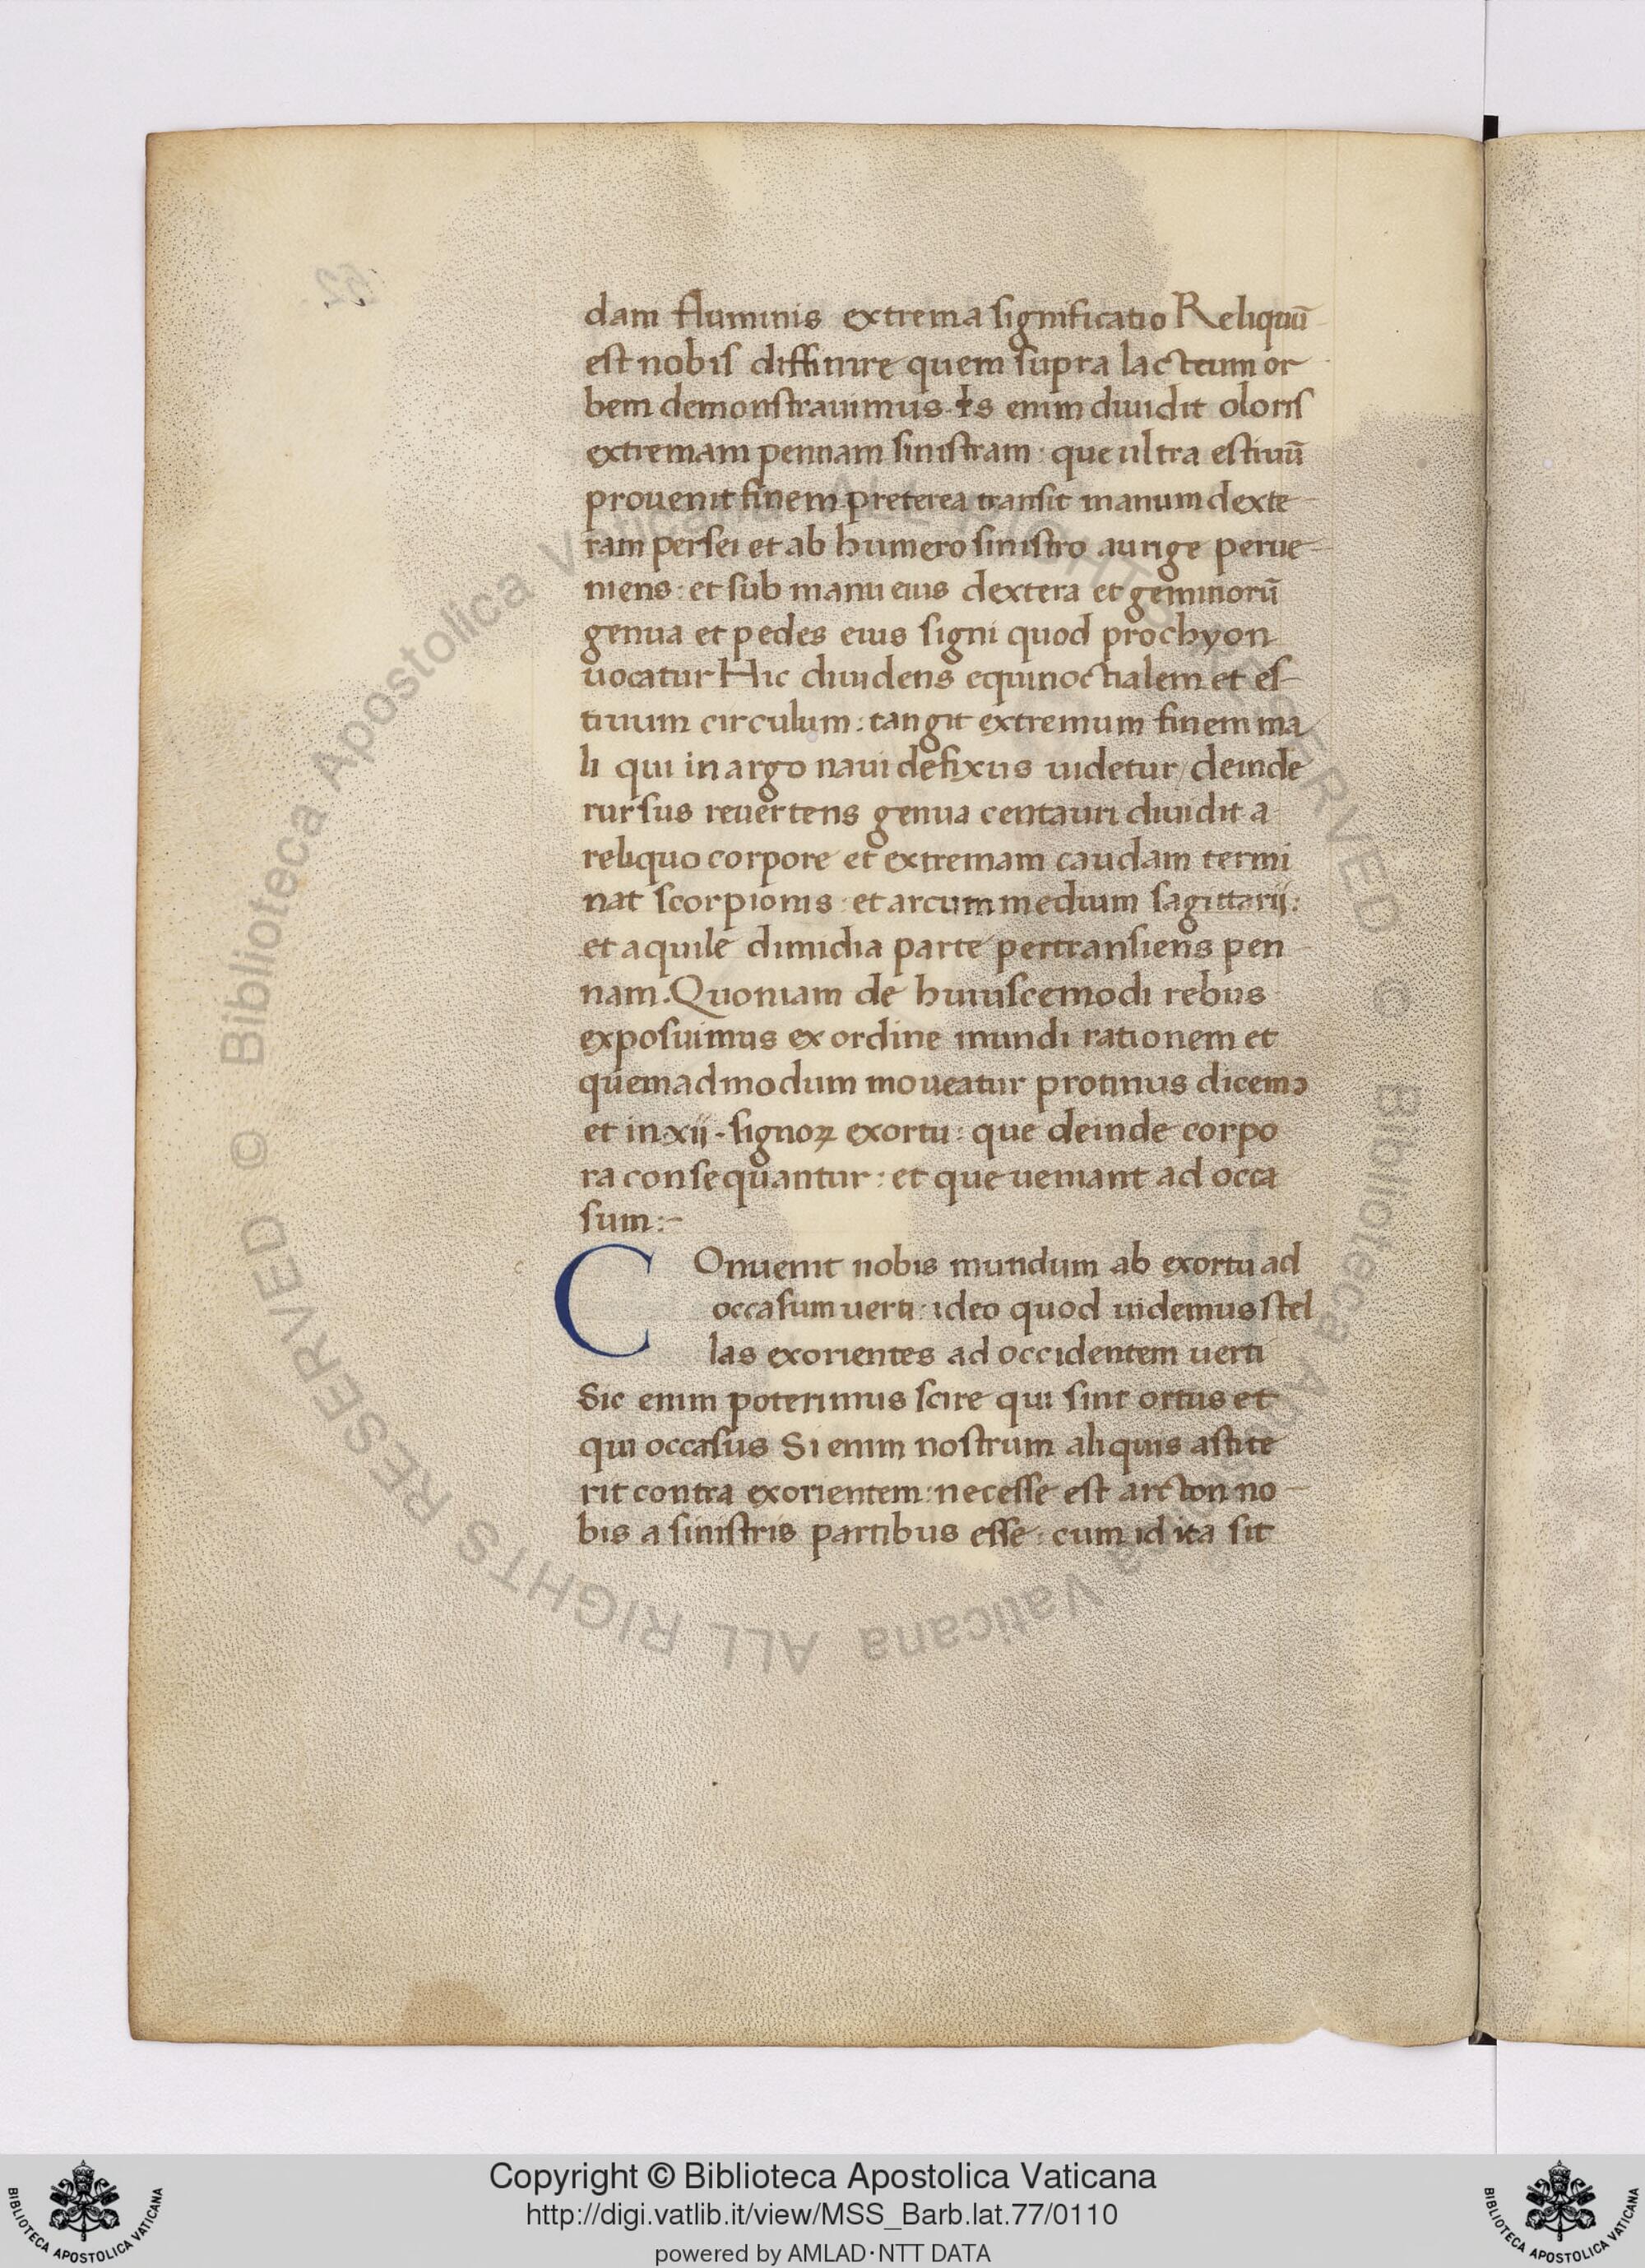 dam fluminis extrema significatio Reliquū
est nobis diffinire quem supra lacteum or
bem demonstrauimus. Is enim diuidit oloris
extremam pennam sinistram : que ultra estiuū
prouenit finem preterea transit manum dexte
ram persei et ab humero sinistro aurige perue
niens : et sub manu eius dextera et geminorū
genua et pedes eius signi quod prochyon
uocatur Hic diuidens equinoctialem et es
tiuum circulum : tangit extremum finem ma
li qui in argo naui defixus uidetur / deinde
rursus reuertens genua centauri diuidit a
reliquo corpore et extremam caudam termi
nat scorpionis : et arcum medium sagittarij :
et aquile dimidia parte pertransiens pen
nam. Quoniam de huiuscemodi rebus
exposuimus ex ordine mundi rationem et
quemadmodum moueatur protinus dicemꝰ
et in xij . signoꝝ exortu : que deinde corpo
ra consequantur : et que ueniant ad occa
sum :-
COnuenit nobis mundum ab exortu ad
occasum uerti : ideo quod uidemus stel
las exorientes ad occidentem uerti
Sic enim poterimus scire qui sint ortus et
qui occasus Si enim nostrum aliquis astite
rit contra exorientem : necesse est arcton no
bis a sinistris partibus esse : cum id ita sit
© Biblioteca Apostolica Vaticana ALL RIGHTS RESERVED © Biblioteca Apostolica Vaticana ALL RIGHTS RESERVED
Copyright © Biblioteca Apostolica Vaticana
http://digi.vatlib.it/view/MSS_Barb.lat.77/0110
powered by AMLAD·NTT DATA
BIBLIOTECA APOSTOLICA VATICANA
BIBLIOTECA APOSTOLICA VATICANA